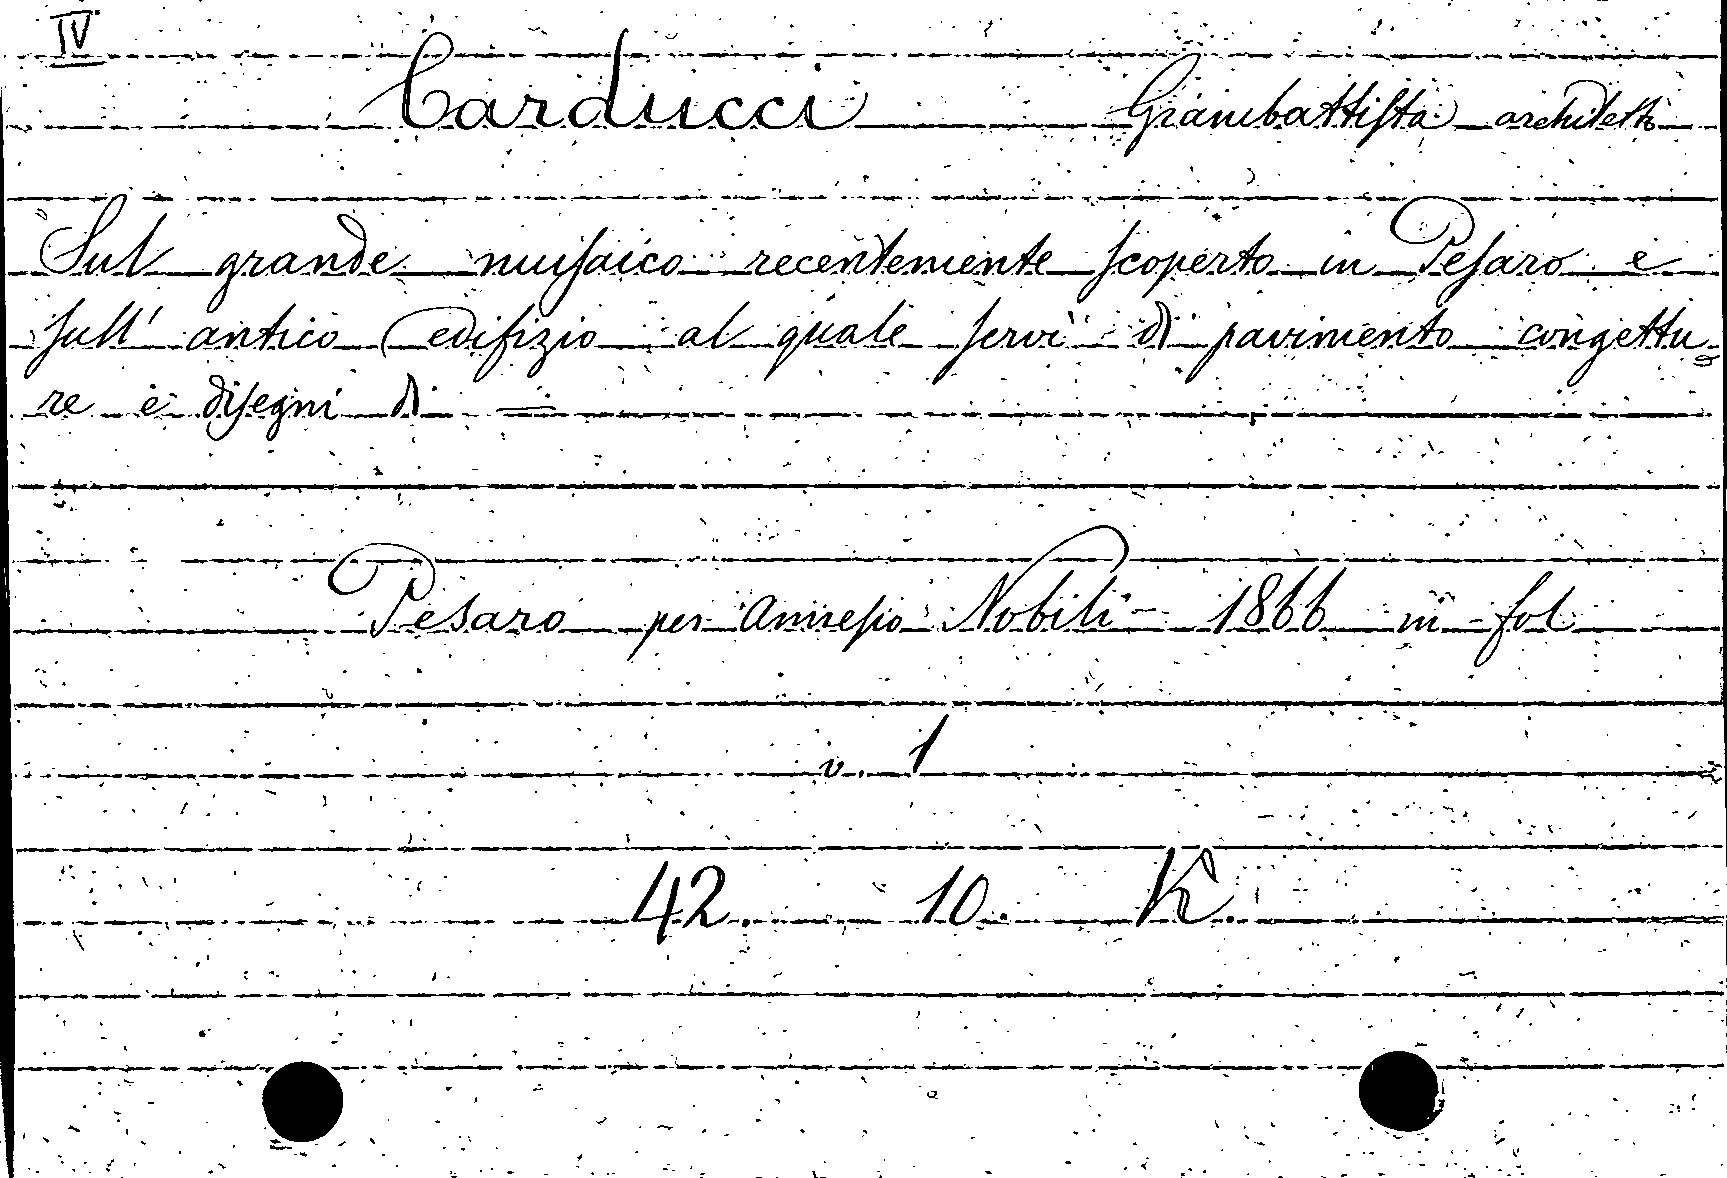 IV
Carducci Giambattista architetto
Sul grande musaico recentemente scoperto in Pesaro e
sull' antico edifizio al quale servì di pavimento congettu=
re e disegni di =
Pesaro per Annesio Nobili - 1866 in fol
v. 1
42. 10. K.